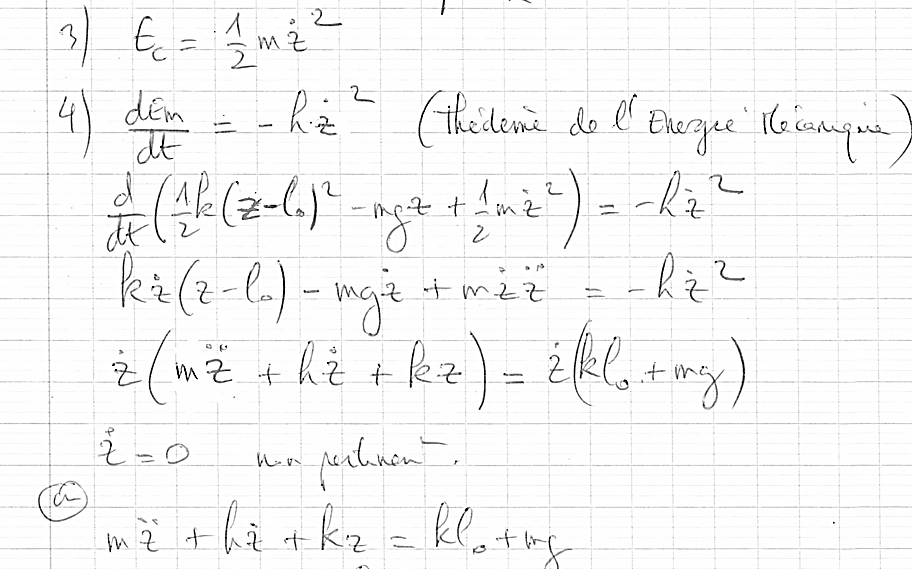 3) E_c = 1/2 mż²
4) dEm/dt = -hż² (Théorème de l'Energie Mécanique)
d/dt (1/2 k(z-l₀)² - mgz + 1/2 mż²) = -hż²
kż(z-l₀) - mgż + mżz̈ = -hż²
ż(mz̈ + hż + kz) = ż(kl₀ + mg)
ż = 0 non pertinent.
mz̈ + hż + kz = kl₀ + mg